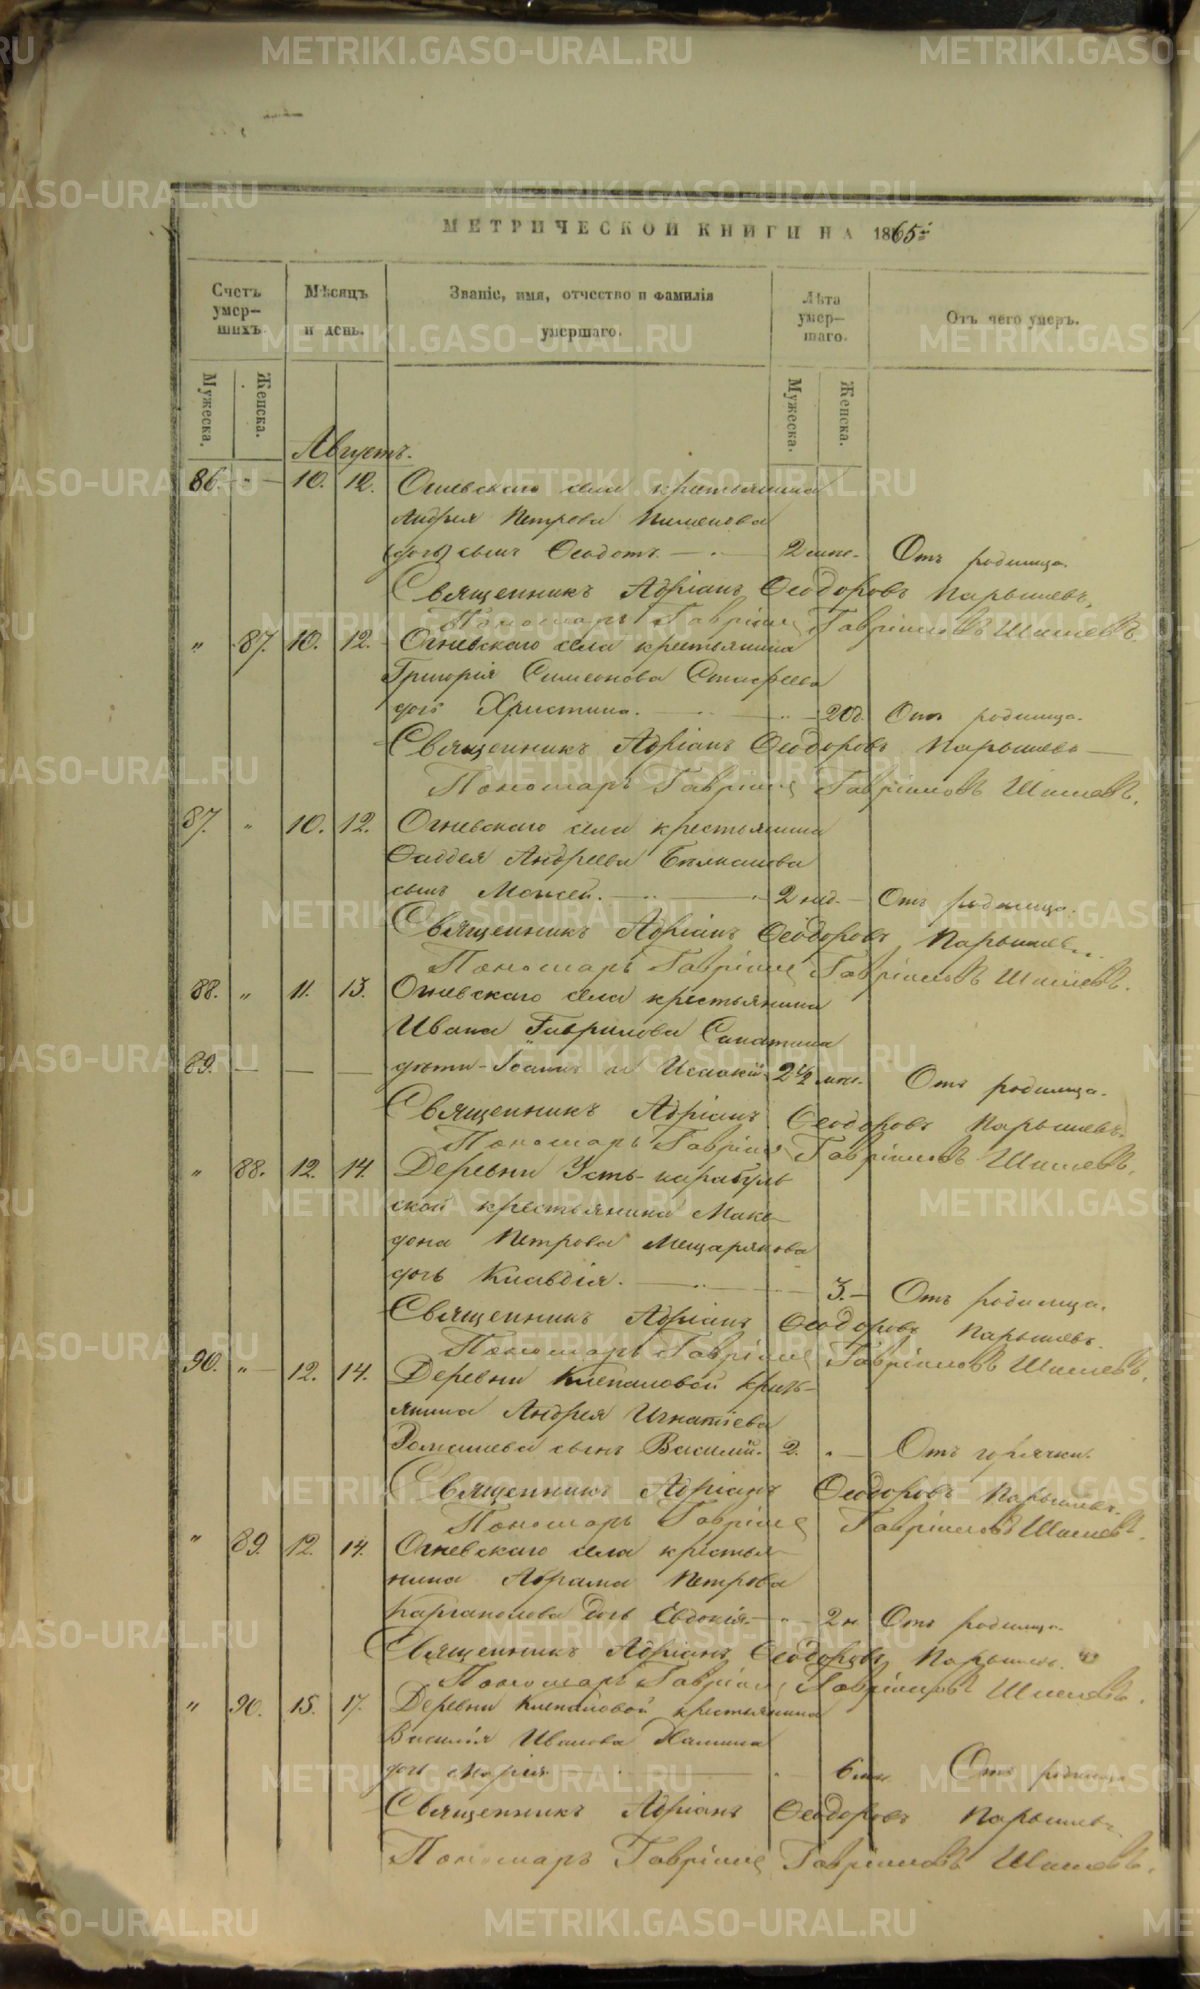 МЕТРИЧЕСКОЙ КНИГИ НА 1865й
Счетъ умер-шихъ.
Мѣсяцъ и день.
Званіе, имя, отчество и фамилія умершаго.
Лѣта умер-шаго.
Отъ чего умеръ.
Мужеска. Женска.
Мужеска. Женска.
Августъ.
86. " 10. 12. Огневскаго села крестьянина
Андрея Петрова Пименова
(дочь) сынъ Ѳеодотъ 2 мис. Отъ родимца.
Священникъ Адріанъ Ѳеодоровъ Парышевъ.
Пономарь Гавріилъ Гавріиловъ Шишевъ
" 87. 10. 12. Огневскаго села крестьянина
Григорія Симеонова
дочь Христина. 20д. Отъ родимца.
Священникъ Адріанъ Ѳеодоровъ Парышевъ
Пономарь Гавріилъ Гавріиловъ Шишевъ.
87. " 10. 12. Огневскаго села крестьянина
Ѳаддея Андреева
сынъ Моисей. 2 нед. Отъ родимца.
Священникъ Адріанъ Ѳеодоровъ Парышевъ.
Пономарь Гавріилъ Гавріиловъ Шишевъ.
88. " 11. 13. Огневскаго села крестьянина
Ивана Гаврилова
89. дѣти Іоаннъ и 2 1/2 мис. Отъ родимца.
Священникъ Адріанъ Ѳеодоровъ Парышевъ.
Пономарь Гавріилъ Гавріиловъ Шишевъ.
" 88. 12. 14. Деревни Усть-караболь
ской крестьянина Маке-
дона Петрова Мещарякова
дочь Клавдія. 3. Отъ родимца.
Священникъ Адріанъ Ѳеодоровъ Парышевъ.
Пономарь Гавріилъ Гавріиловъ Шишевъ.
90. " 12. 14. Деревни Клепаловой кресть-
янина Андрея Игнатіева
сынъ Василій. 2. " Отъ горячки.
Священникъ Адріанъ Ѳеодоровъ Парышевъ.
Пономарь Гавріилъ Гавріиловъ Шишевъ.
" 89. 12. 14. Огневскаго села крестья-
нина Абрама Петрова
Каргаполова дочь Евдокія 2 н. Отъ родимца.
Священникъ Адріанъ Ѳеодоровъ Парышевъ.
Пономарь Гавріилъ Гавріиловъ Шишевъ.
" 90. 15. 17. Деревни Клепаловой крестьянина
Василія Иванова
дочь Марія 6 мис Отъ родимца
Священникъ Адріанъ Ѳеодоровъ Парышевъ
Пономарь Гавріилъ Гавріиловъ Шишевъ.
METRIKI.GASO-URAL.RU